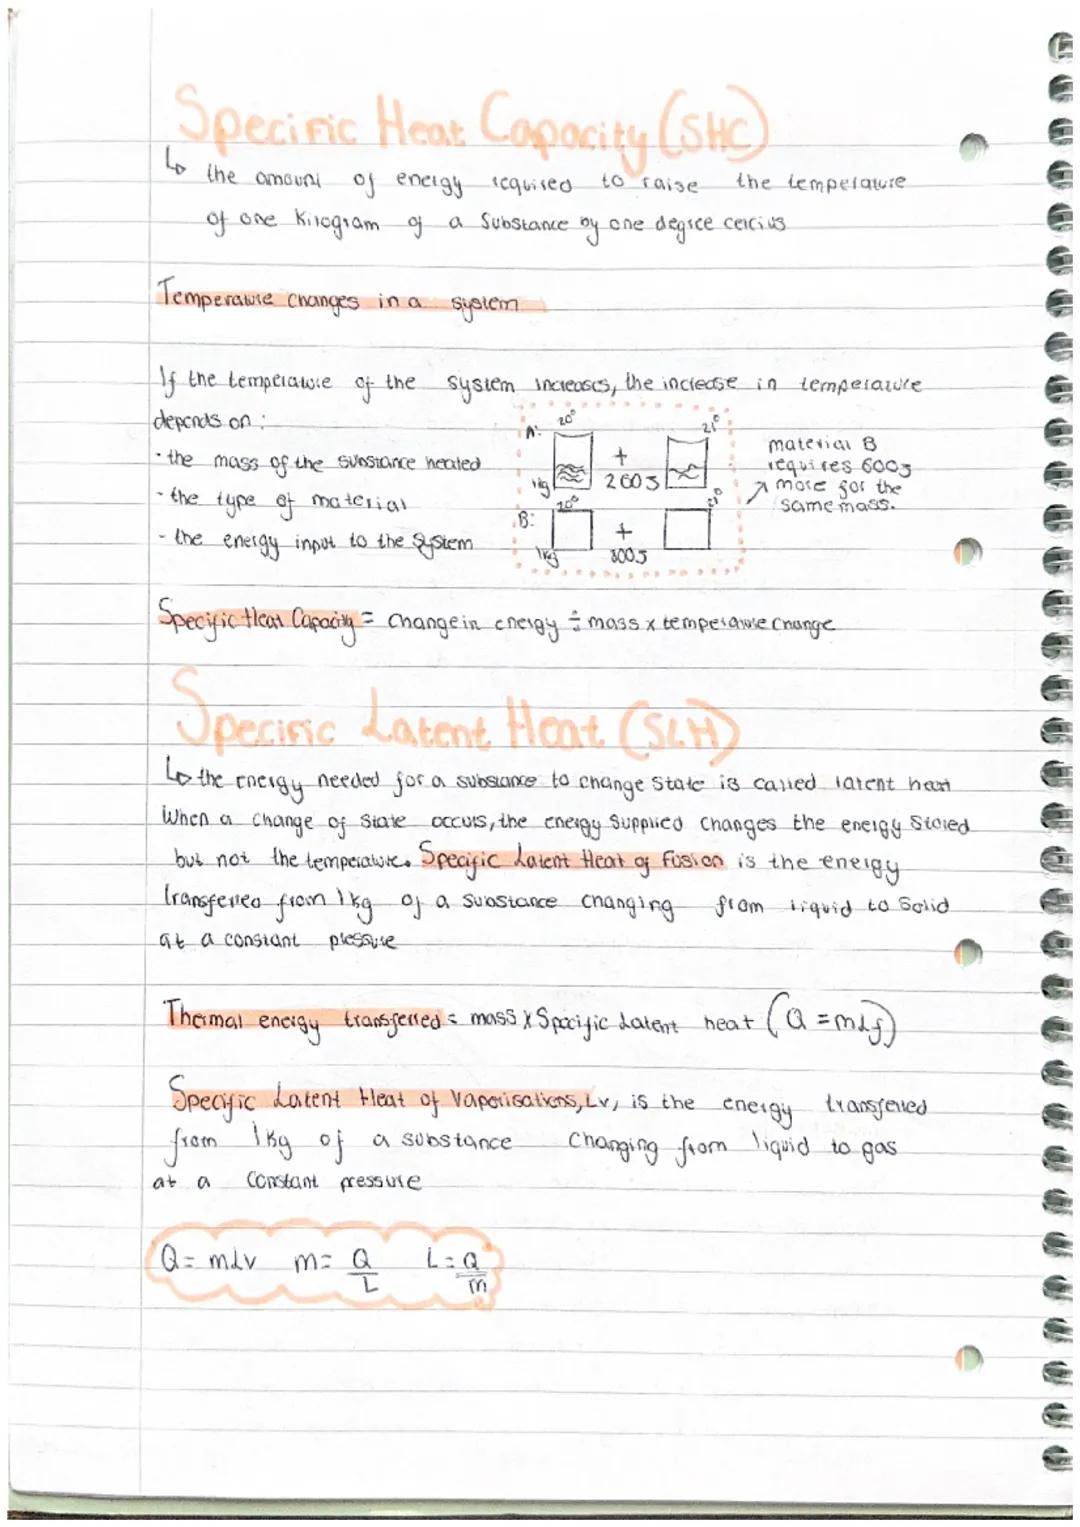 Specific Heat Capacity (SHC)
↳ the amount of energy required to raise the temperature
of one kilogram of a substance by one degree celcius
Temperature changes in a system
If the temperature of the system increases, the increase in temperature
depends on :
· the mass of the substance heated
- the type of material
- the energy input to the system
A: 20° 21°
+
1kg 200J
B: 20° 21°
+
1kg 800J
material B
requires 600J
↗ more for the
same mass.
Specific Heat Capacity = change in energy ÷ mass x temperature change
Specific Latent Heat (SLH)
↳ the energy needed for a substance to change state is called latent heat
When a change of state occurs, the energy supplied changes the energy stored
but not the temperature. Specific Latent Heat of fusion is the energy
transferred from 1kg of a substance changing from liquid to solid
at a constant pressure
Thermal energy transferred = mass x Specific Latent heat (Q = mLf)
Specific Latent Heat of Vaporisations, Lv, is the energy transferred
from 1kg of a substance changing from liquid to gas
at a constant pressure
Q = mLv m = Q/L L = Q/m